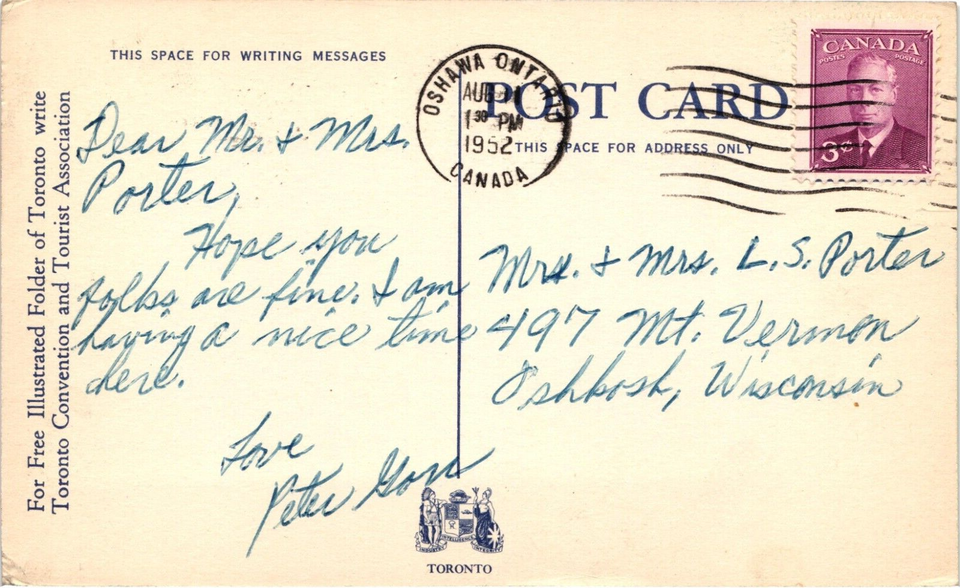 THIS SPACE FOR WRITING MESSAGES
For Free Illustrated Folder of Toronto write
Toronto Convention and Tourist Association
Dear Mr. & Mrs.
Porter,
Hope you
folks are fine. I am
having a nice time
here.
Love
Peter
OSHAWA ONTARIO
AUG
1 30 PM
1952
CANADA
POST CARD
THIS SPACE FOR ADDRESS ONLY
CANADA
POSTES POSTAGE
3c
Mrs. & Mrs. L.S. Porter
497 Mt. Vernon
Oshkosh, Wisconsin
INDUSTRY INTELLIGENCE INTEGRITY
TORONTO